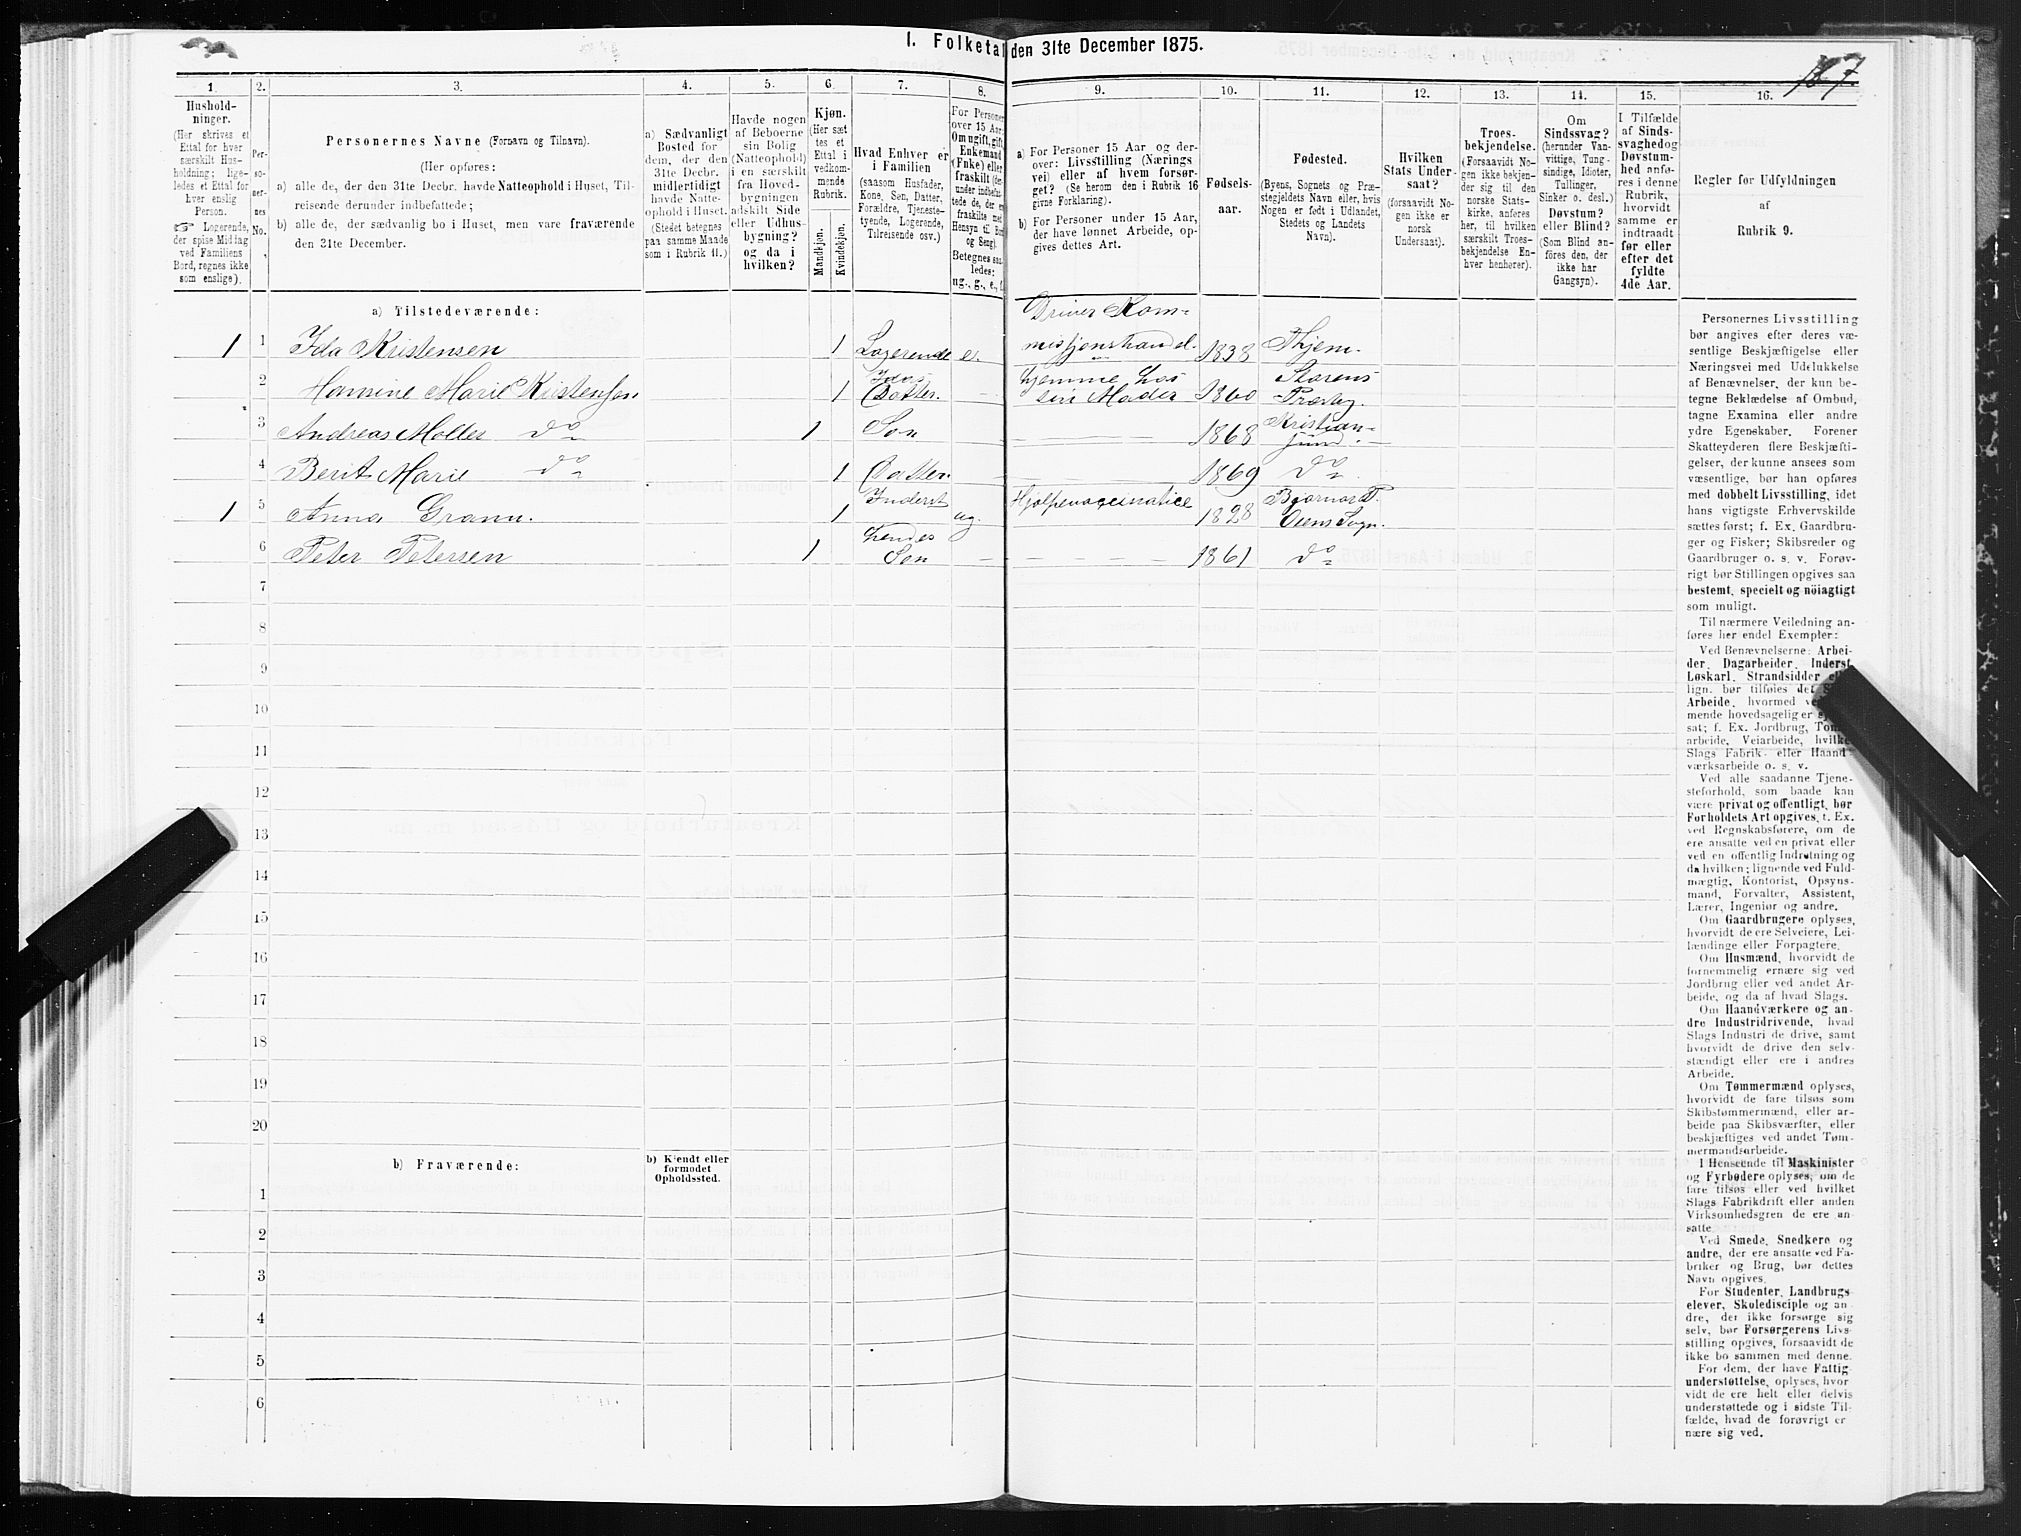 I. Folketal den 31te December 1875.
187.
1.
Hushold-
ninger.
(Her skrives et
Ettal for hver
særskilt Hus-
holdning; lige-
ledes et Ettal for
hver enslig
Person.
☞ Logerende,
der spise Middag
ved Familiens
Bord, regnes ikke
som enslige).
2.
Per-
so-
ner-
nes
No.
3.
Personernes Navne (Fornavn og Tilnavn).
(Her opføres:
a) alle de, der den 31te Decbr. havde Natteophold i Huset, Til-
reisende derunder indbefattede;
b) alle de, der sædvanlig bo i Huset, men vare fraværende
den 31te December.
4.
a) Sædvanligt
Bosted for
dem, der den
31te Decbr.
midlertidigt
havde Natte-
ophold i Huset.
(Stedet betegnes
paa samme Maade
som i Rubrik 11.)
5.
Havde nogen
af Beboerne
sin Bolig
(Natteophold)
i en særskilt
fra Hoved-
bygningen
adskilt Side
eller Udhus-
bygning?
og da i
hvilken?
6.
Kjøn.
(Her sæt
tes et
Ettal i
vedkom-
mende
Rubrik.
Mandkjøn.
Kvindekjøn.
7.
Hvad Enhver er
i Familien
(saasom Husfader,
Kone, Søn, Datter,
Forældre, Tjeneste-
tyende, Logerende,
Tilreisende osv.)
8.
For Personer
over 15 Aar:
Om ugift, gift,
Enkemand
(Enke) eller
fraskilt (der-
under indbefat-
tede de, der ere
fraskilte med
Hensyn til Bord
og Seng).
Betegnes saa-
ledes:
ug., g., e., f.
9.
a) For Personer 15 Aar og der-
over: Livsstilling (Nærings
vei) eller af hvem forsør-
get? (Se herom den i Rubrik 16
givne Forklaring).
b) For Personer under 15 Aar,
der have lønnet Arbeide, op-
gives dettes Art.
10.
Fødsels-
aar.
11.
Fødested.
(Byens, Sognets og Præ-
stegjeldets Navn eller, hvis
Nogen er født i Udlandet,
Stedets og Landets
Navn).
12.
Hvilken
Stats Under-
saat?
(forsaavidt No-
gen ikke er
norsk
Undersaat).
13.
Troes-
bekjendelse.
(Forsaavidt No-
gen ikke bekjen-
der sig til den
norske Stats-
kirke, anføres
her, til hvilken
særskilt Troes-
bekjendelse En-
hver henhører).
14.
Om
Sindssvag?
(herunder Van-
vittige, Tung-
sindige, Idioter,
Tullinger,
Sinker o. desl.)
Døvstum?
eller Blind?
(Som Blind an-
føres den, der
ikke har
Gangsyn).
15.
I Tilfælde
af Sinds-
svaghed og
Døvstum-
hed anfø-
res i denne
Rubrik,
hvorvidt
samme er
indtraadt
før eller
efter det
fyldte
4de Aar.
16.
Regler for Udfyldningen
af
Rubrik 9.
a) Tilstedeværende:
Driver Kom-
1 1 Ida Kristensen 1 Logerende e. misjonshandel. 1838 Thjem.
Idas hjemme hos Størens
2 Hansine Marie Kristensen 1 Datter. sin Moder 1860 Præstg.
3 Andreas Moller do 1 Søn 1868 Kristian-
sund.
4 Berit Marie do 1 Datter. 1869 do
Inderst Bjørnør P.
1 5 Anna Grann. 1 ug. Hjælpevaccinatice 1828 Osens Sogn.
hendes
6 Peter Petersen 1 Søn 1861 do
7
8
9
10
11
12
13
14
15
16
17
18
19
20
b) Fraværende:
b) Kjendt eller
formodet
Opholdssted.
1
2
3
4
5
6
Personernes Livsstilling
bør angives efter deres væ-
sentlige Beskjæftigelse eller
Næringsvei med Udelukkelse
af Benævnelser, der kun be-
tegne Beklædelse af Ombud,
tagne Examina eller andre
ydre Egenskaber. Forener
Skatteyderen flere Beskjæfti-
gelser, der kunne ansees som
væsentlige, bør han opføres
med dobbelt Livsstilling, idet
hans vigtigste Erhvervskilde
sættes først; f. Ex. Gaardbru-
ger og Fisker; Skibsreder og
Gaardbruger o. s. v. Forøv-
rigt bør Stillingen opgives saa
bestemt, specielt og nöiagtigt
som muligt.
Til nærmere Veiledning an-
føres her endel Exempler:
Ved Benævnelserne: Arbei-
der, Dagarbeider, Inderst,
Løskarl, Strandsidder
lign. bør tilføies det
Arbeide, hvormed
mende hovedsagelig er
sat; f. Ex. Jordbrug,
arbeide, Veiarbeide, hvilket
Slags Fabrik- eller Haand-
værksarbeide o. s. v.
Ved alle saadanne Tjene-
steforhold, som baade kan
være privat og offentligt, bør
Forholdets Art opgives, t. Ex.
ved Regnskabsførere, om de
ere ansatte ved en privat eller
ved en offentlig Indretning og
da hvilken; lignende ved Fuld-
mægtig, Kontorist, Opsyns-
mand, Forvalter, Assistent,
Lærer, Ingeniør og andre.
Om Gaardbrugere oplyses,
hvorvidt de ere Selveiere, Lei-
lændinge eller Forpagtere.
Om Husmænd, hvorvidt de
fornemmelig ernære sig ved
Jordbrug eller ved andet Ar-
beide, og da af hvad Slags.
Om Haandværkere og an-
dre Industridrivende, hvad
Slags Industri de drive, samt
hvorvidt de drive den selv-
stændigt eller ere i andres
Arbeide.
Om Tømmermænd oplyses,
hvorvidt de fare tilsøs som
Skibstømmermænd, eller ar-
beide paa Skibsværfter, eller
beskjæftiges ved andet Tøm-
mermandsarbeide.
I Henseende til Maskinister
og Fyrbødere oplyses, om de
fare tilsøs eller ved hvilket
Slags Fabrikdrift eller anden
Virksomhedsgren de ere an-
satte.
Ved Smede, Snedkere og
andre, der ere ansatte ved Fa-
briker og Brug, bør dettes
Navn opgives.
For Studenter, Landbrugs
elever, Skoledisciple og an
dre, der ikke forsørge sig
selv, bør Forsørgerens Livs-
stilling opgives, forsaavidt de
ikke bo sammen med denne.
For dem, der have Fattig
understøttelse, oplyses, hvor
vidt de ere helt eller delvis
understøttede og i sidste Til-
fælde, hvad de forøvrigt er
nære sig ved.